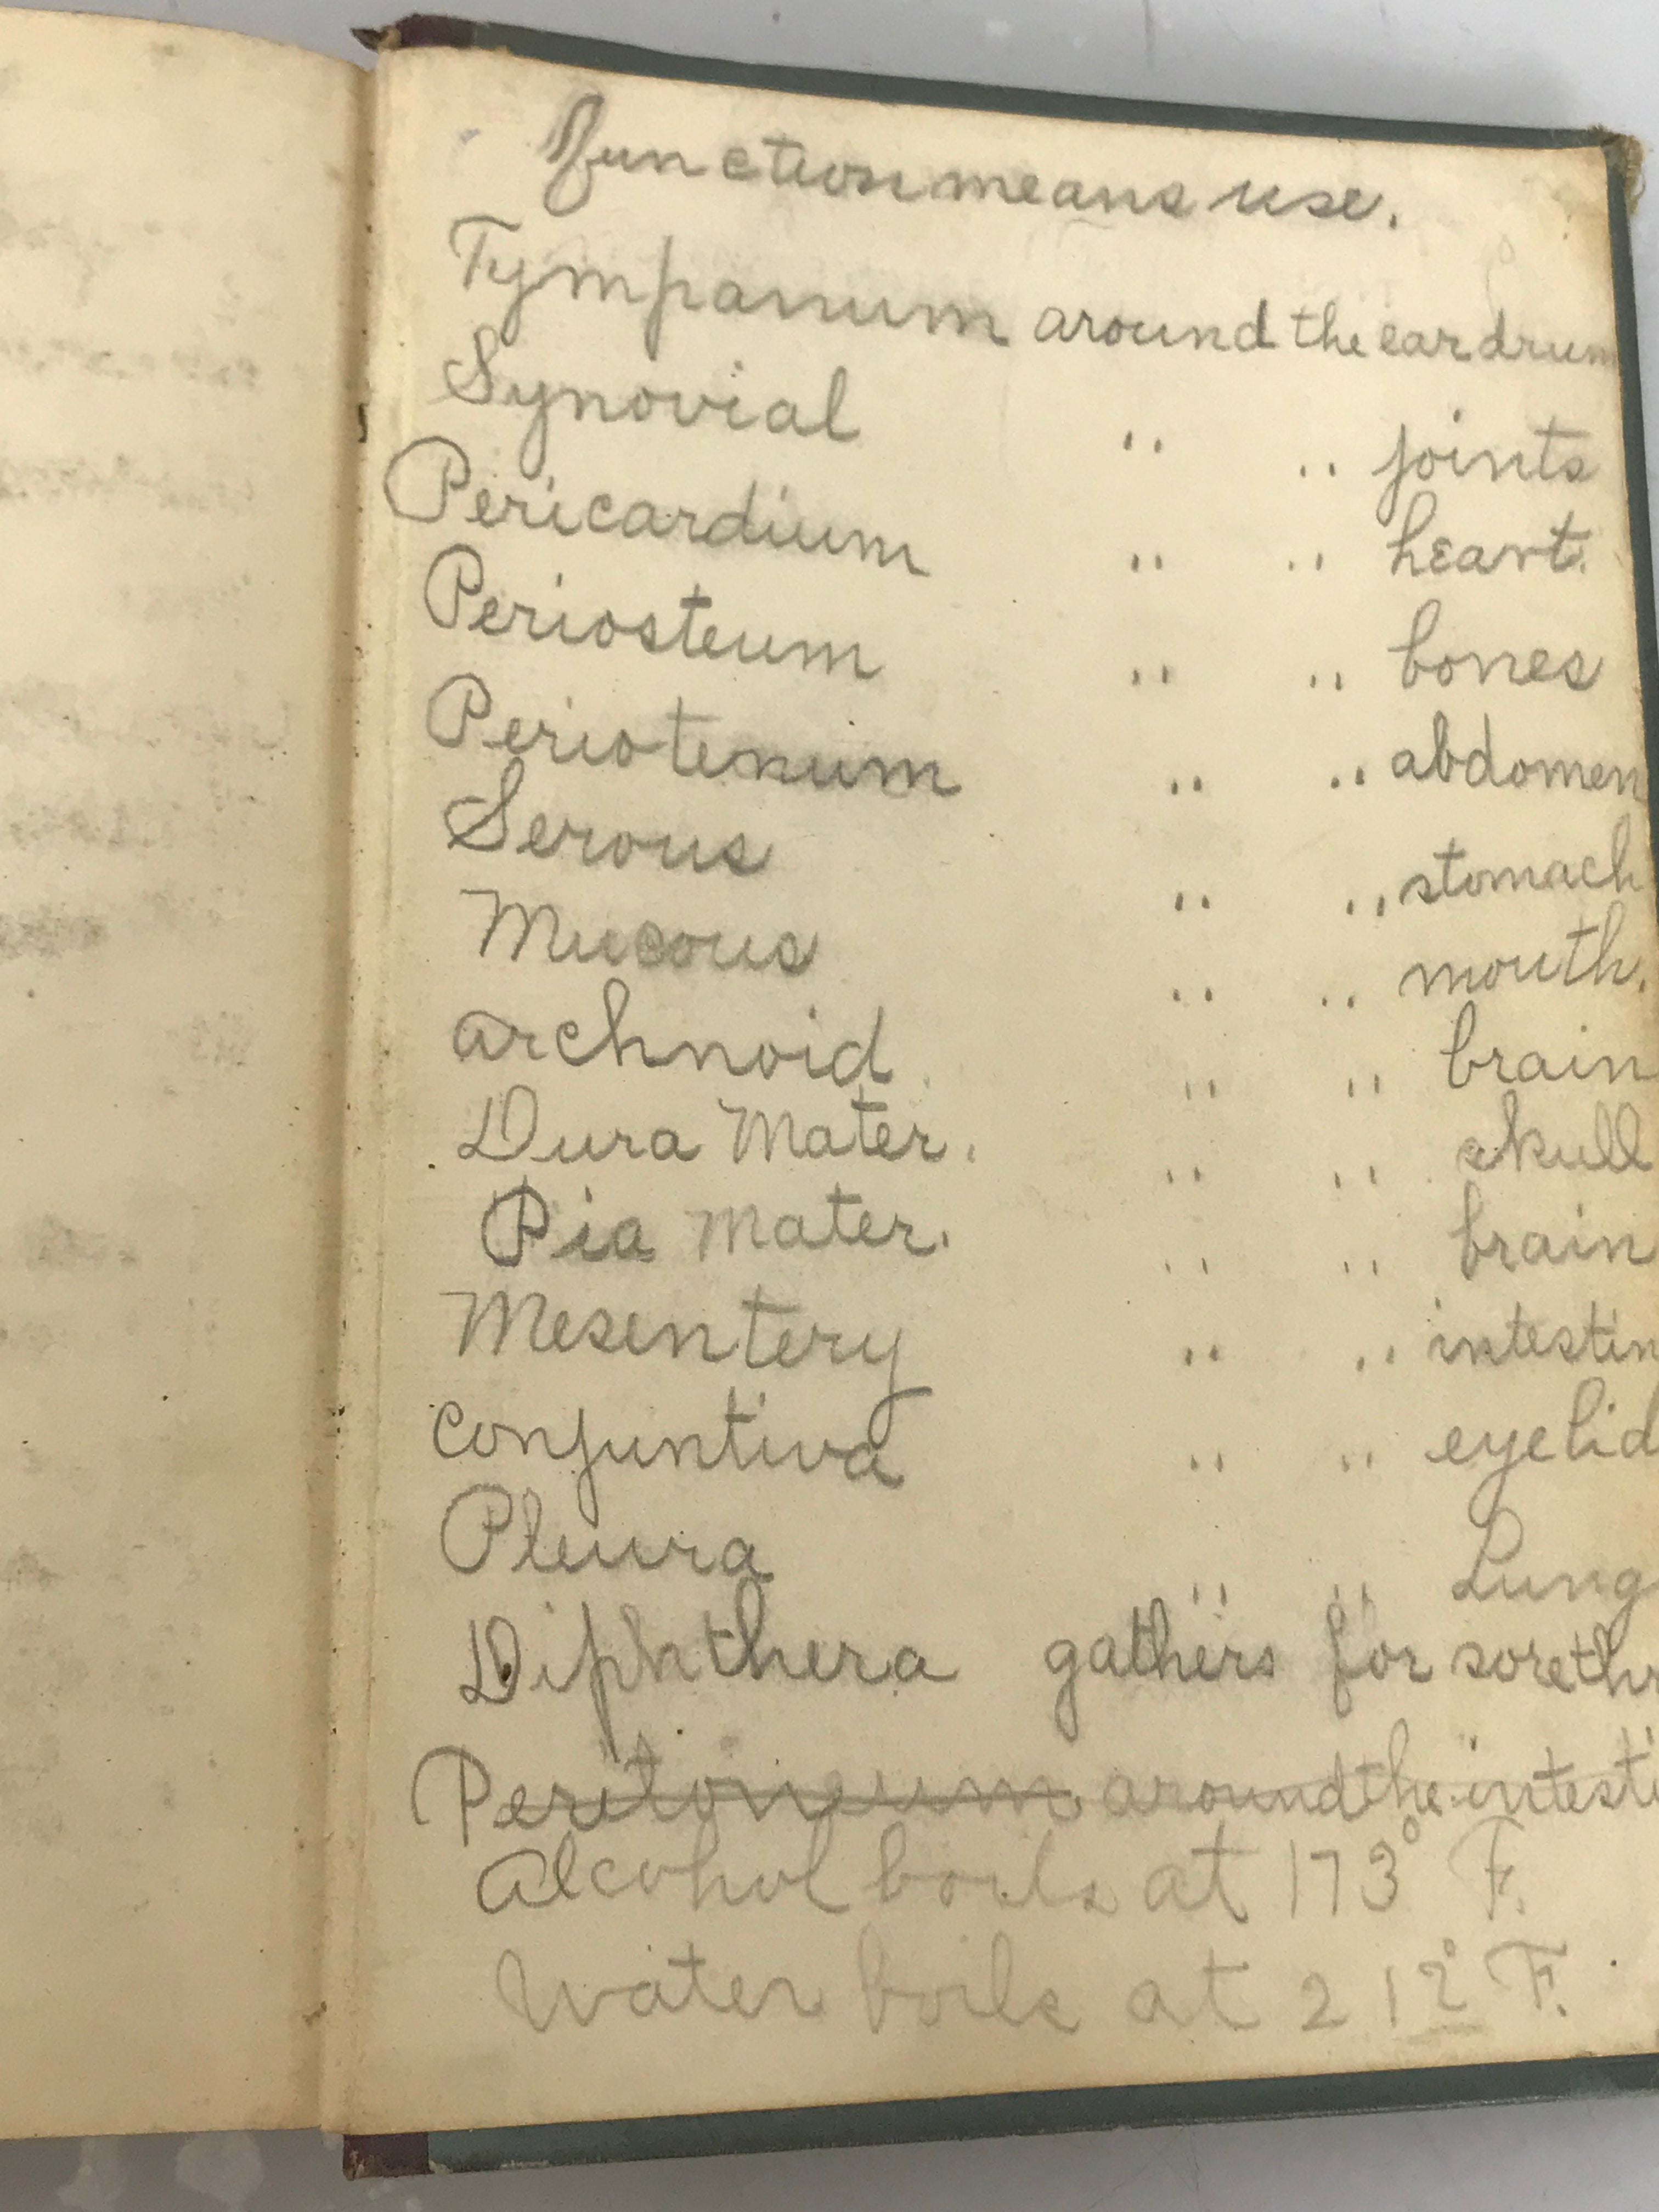 function means use.
Tympanum around the ear drum
Synovial " " joints
Pericardium " " heart.
Periosteum " " bones
Periotenum " " abdomen
Serous " " stomach
Mucous " " mouth.
archnoid " " brain
Dura Mater. " " skull
Pia Mater. " " brain
Mesentery " " intestin
conjuntiva " " eyelid
Pleura " " Lung
Diphthera gathers for sorethr
Peritoneum around the intesti
Alcohol boils at 173° F.
Water boils at 212° F.